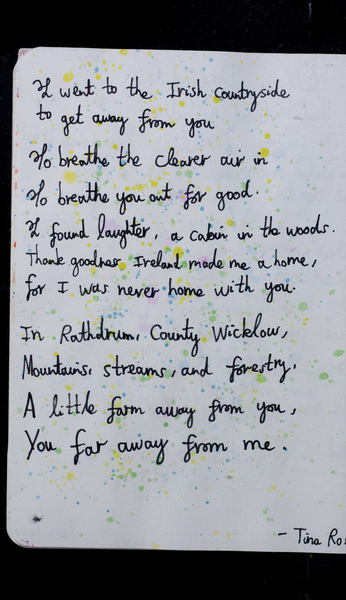 I went to the Irish Countryside
to get away from you
To breathe the clearer air in
To breathe you out for good.
I found laughter, a cabin in the woods.
Thank goodness Ireland made me a home,
for I was never home with you.
In Rathdrum, County Wicklow,
Mountains, streams, and forestry.
A little farm away from you,
You far away from me.
- Tina